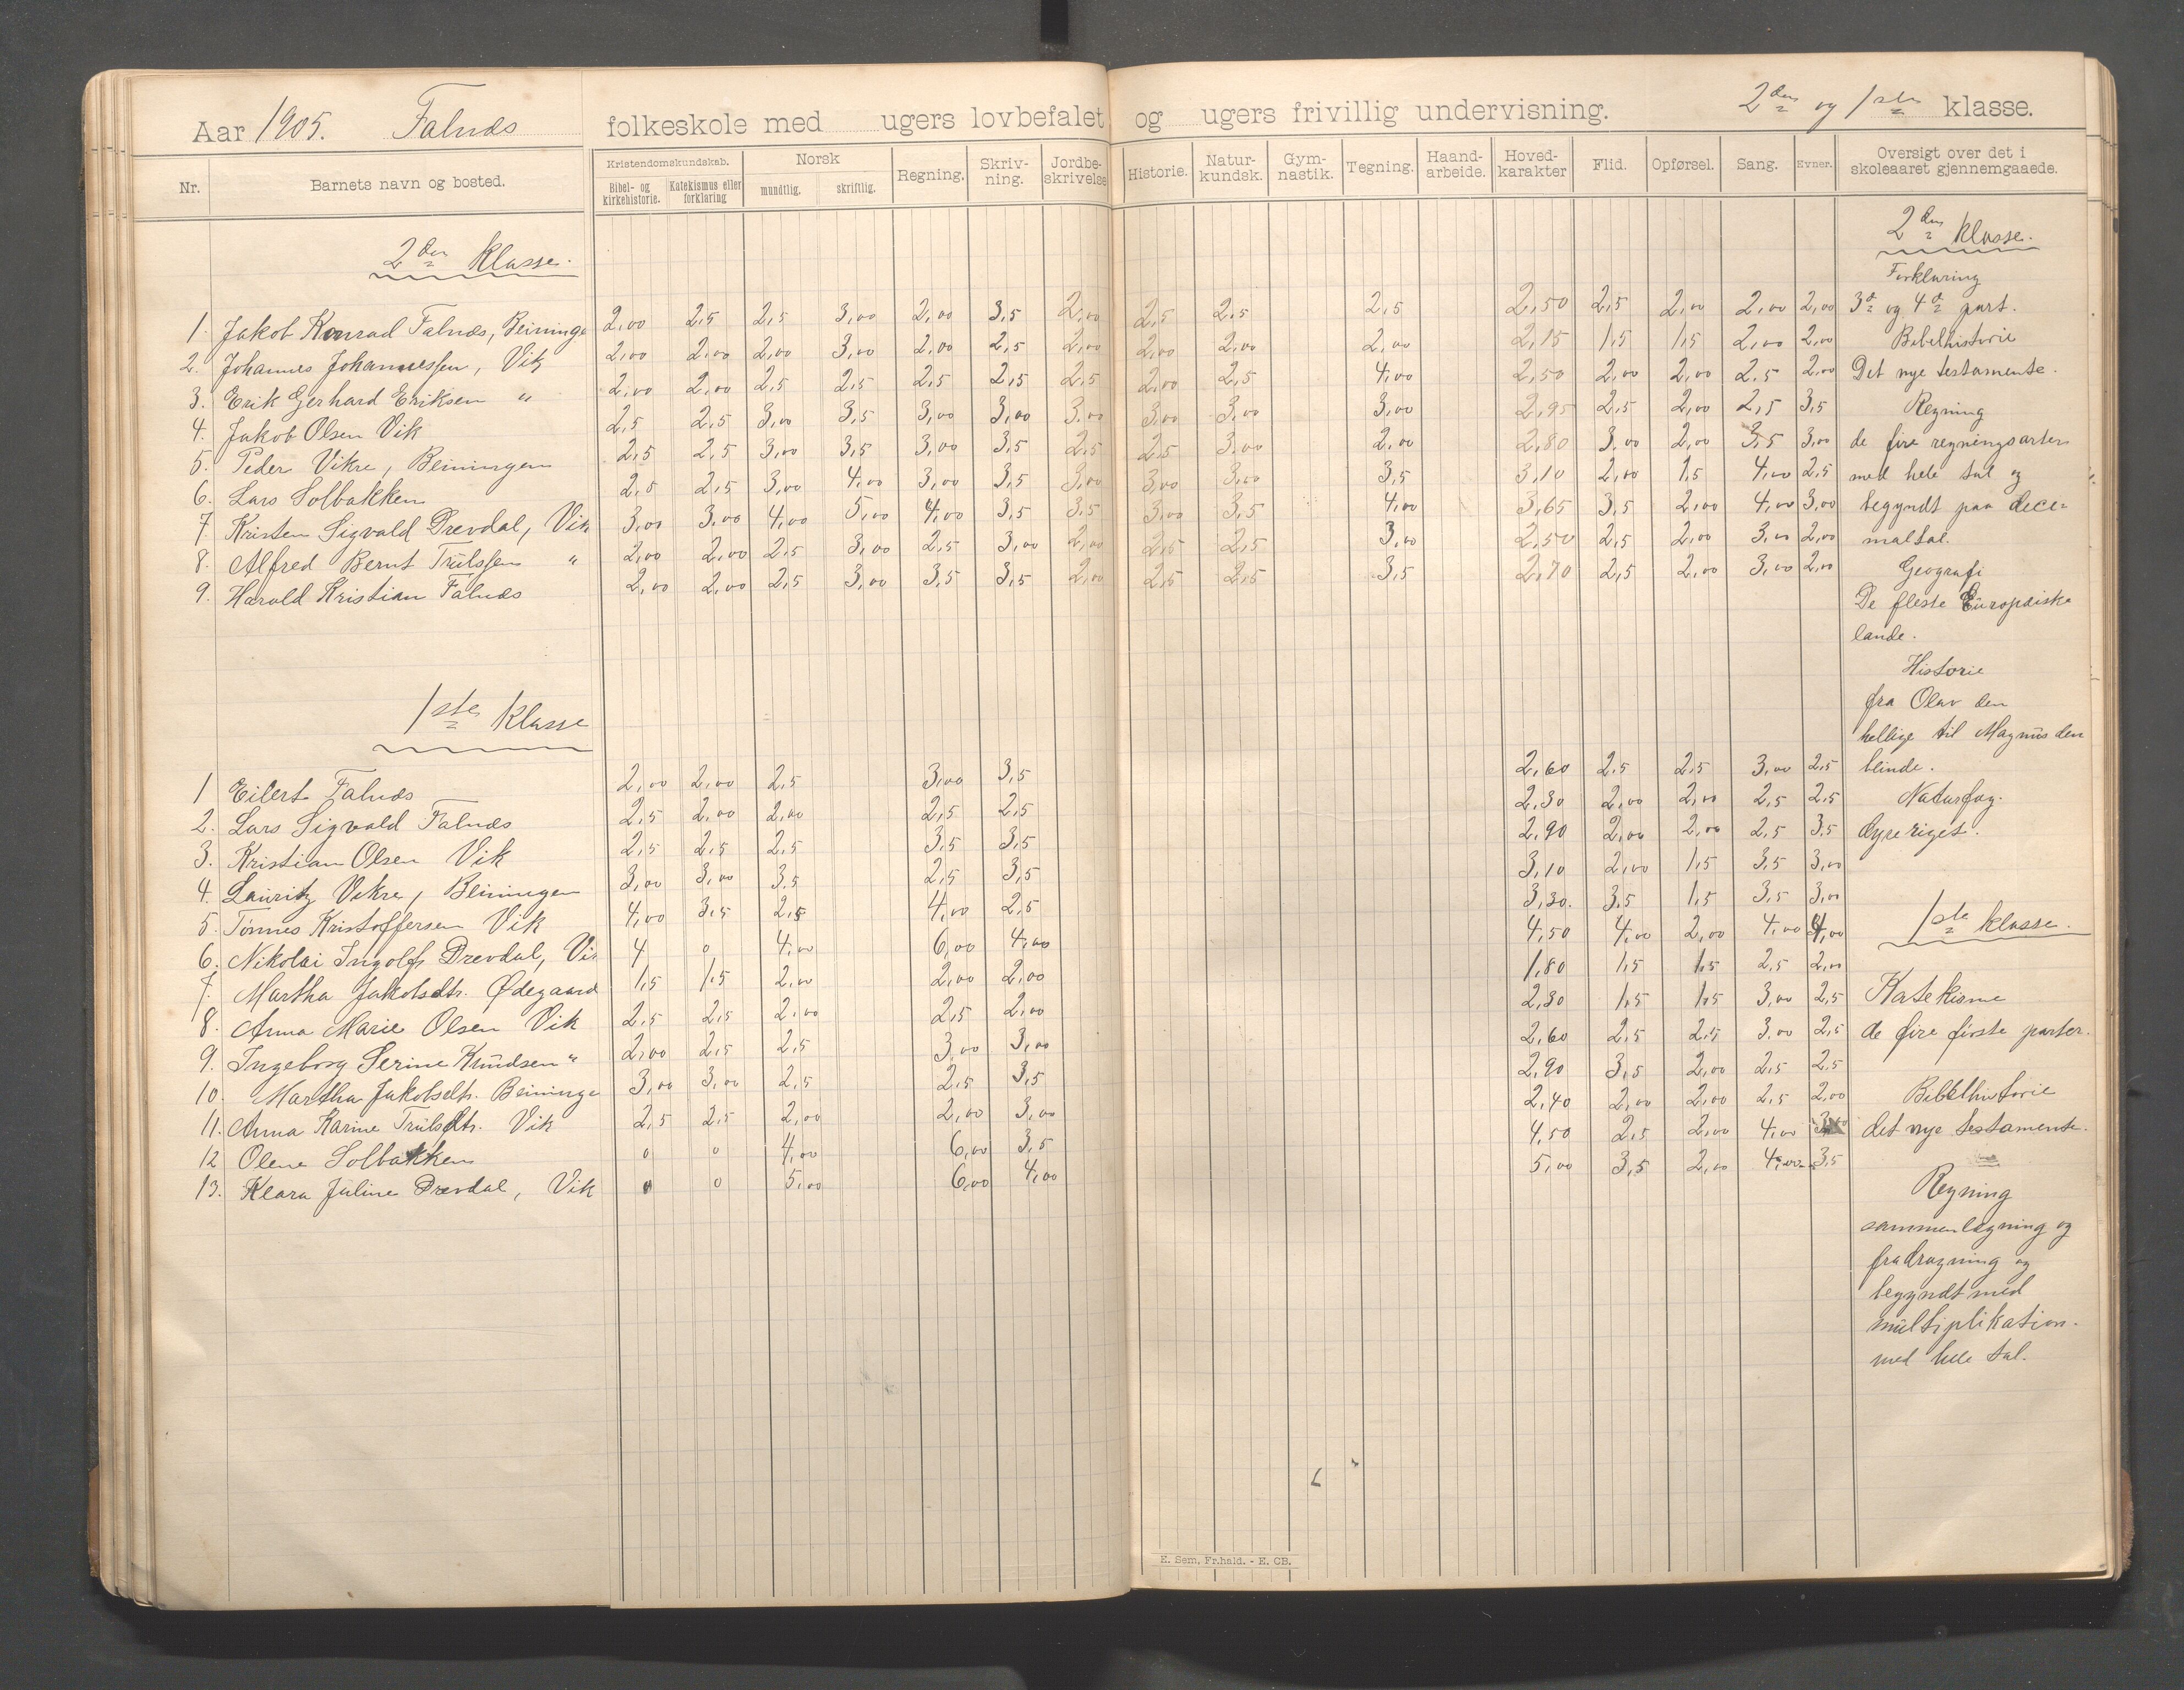 Aar 1905. Falnæs folkeskole med ugers lovbefalet og ugers frivillig undervisning. 2den og 1ste klasse.
Nr. Barnets navn og bosted. Kristendomskundskab. Bibel- og kirkehistorie. Katekismus eller forklaring Norsk mundtlig. skriftlig. Regning. Skriv-ning. Jordbe-skrivelse Historie. Natur-kundsk. Gym-nastik. Tegning. Haand-arbeide. Hoved-karakter Flid. Opførsel. Sang. Evner. Oversigt over det i skoleaaret gjennemgaaede.
2den klasse.
1. Jakob Konrad Falnæs, Beininge 2,00 2,5 2,5 3,00 2,00 3,5 2,00 2,5 2,5 2,5 2,50 2,5 2,00 2,00 2,00
2. Johannes Johannessen, Vik 2,00 2,00 2,00 3,00 2,00 2,5 2,00 2,00 2,00 2,00 2,15 1,5 1,5 2,00 2,00
3. Erik Gerhard Eriksen " 2,00 2,00 2,5 2,5 2,5 2,5 2,5 2,00 2,5 4,00 2,50 2,00 2,00 2,5 2,00
4. Jakob Olsen Vik 2,5 2,5 3,00 3,5 3,00 3,00 3,00 3,00 3,00 3,00 2,95 2,5 2,00 2,5 3,5
5. Peder Vikre, Beiningen 2,5 2,5 3,00 3,5 3,00 3,5 2,5 2,5 3,00 2,00 2,80 3,00 2,00 3,5 3,00
6. Lars Solbakken 2,5 2,5 3,00 4,00 3,00 3,5 3,00 3,00 3,00 3,5 3,10 2,00 1,5 4,00 2,5
7. Kristen Sigvald Drevdal, Vik 3,00 3,00 4,00 5,00 4,00 3,5 3,5 3,00 3,5 4,00 3,65 3,5 2,00 4,00 3,00
8. Alfred Bernt Trulssen " 2,00 2,00 2,5 3,00 2,5 3,00 2,00 2,5 2,5 3,00 2,50 2,5 2,00 3,00 2,00
9. Harald Kristian Falnæs 2,00 2,00 2,5 3,00 3,5 3,5 2,00 2,5 2,5 3,5 2,70 2,5 2,00 3,00 2,00
1ste klasse
1 Eilert Falnæs 2,00 2,00 2,5 3,00 3,5 2,60 2,5 2,5 3,00 2,5
2. Lars Sigvald Falnæs 2,5 2,00 2,00 2,5 2,5 2,30 2,00 2,00 2,5 2,5
3. Kristian Olsen Vik 2,5 2,5 2,5 3,5 3,5 2,90 2,00 2,00 2,5 3,5
4. Lauritz Vikre, Beiningen 3,00 3,00 3,5 2,5 3,5 3,10 2,00 1,5 3,5 3,00
5. Tønnes Kristoffersen Vik 4,00 3,5 2,5 4,00 2,5 3,30. 3,5 1,5 3,5 3,00
6. Nikolai Ingolf Drevdal, Vik 4 0 4,00 6,00 4,00 4,50 4,00 2,00 4,00 4,00
7. Martha Jakobsdtr. Ødegaard 1,5 1,5 2,00 2,00 2,00 1,80 1,5 1,5 2,5 2,00
8. Anna Marie Olsen Vik 2,5 2,5 2,00 2,5 2,00 2,30 1,5 1,5 3,00 2,5
9. Ingeborg Serine Knudsen " 2,00 2,5 2,5 3,00 3,00 2,60 2,5 2,5 3,00 2,5
10. Martha Jakobsdtr. Beininge 3,00 3,00 2,5 2,5 3,5 2,90 3,5 2,00 2,5 2,5
11. Anna Karine Trulsdtr. Vik 2,5 2,5 2,00 2,00 3,00 2,40 2,00 2,00 2,5 2,00
12 Olene Solbakken 0 0 4,00 6,00 3,5 4,50 2,5 2,00 4,00
13. Klara Juline Drevdal, Vik 0 0 5,00 6,00 4,00 5,00 3,5 2,00 4,00 3,5
2den klasse.
Forklaring
3d og 4d part.
Bibelhistorie
Det nye testamente.
Regning
de fire regningsarter
med hele tal og
begyndt paa dece-
maltal.
Geografi
De fleste Europæiske
lande.
Historie
fra Olav den
hellige til Magnus den
blinde.
Naturfag.
dyreriget.
1ste klasse.
Katekisme
de fire første parter.
Bibelhistorie
det nye testamente.
Regning
sammenlægning og
fradragning og
begyndt med
multiplikation.
med hele tal.
E. Sem, Fr.hald. - E. CB.